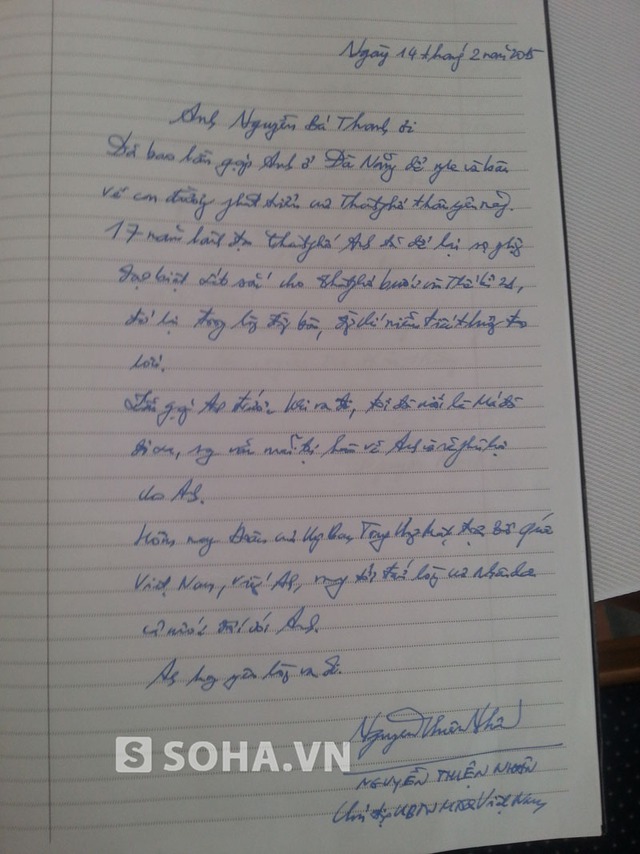 Ngày 14 tháng 2 năm 2015
Anh Nguyễn Bá Thanh ơi
Đã bao lần gặp Anh ở Đà Nẵng để nghe và bàn
về con đường phát triển của Thành phố thân yêu này.
17 năm lãnh đạo Thành phố Anh đã để lại sự nghiệp
đặc biệt xuất sắc cho Thành phố bước vào Thế kỉ 21,
để lại trong lòng đồng bào, đồng chí niềm tiếc thương to
lớn.
Lần gặp Anh trước khi ra đi, tôi đã
vẫn về Anh và
cho Anh.
Hôm nay Đoàn của Ủy Ban Trung ương Mặt trận Tổ quốc
Việt Nam, viếng Anh, mang tới tấm lòng của Nhân dân
cả nước đối với Anh.
Anh hãy yên lòng ra đi.
NGUYỄN THIỆN NHÂN
Chủ tịch UBTW MTTQ Việt Nam
S SOHA.VN